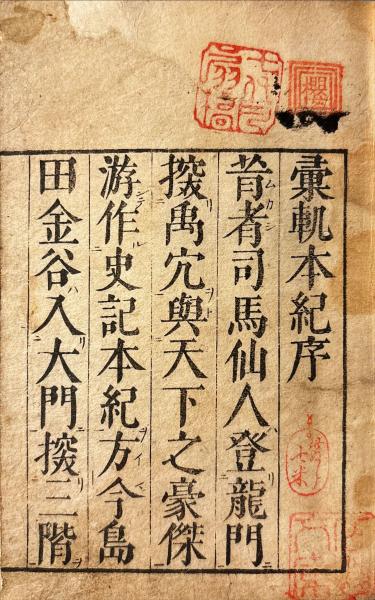 彙軌本紀序
昔者司馬仙人登龍門
探禹穴與天下之豪傑
游作史記本紀方今島
田金谷入大門探三階